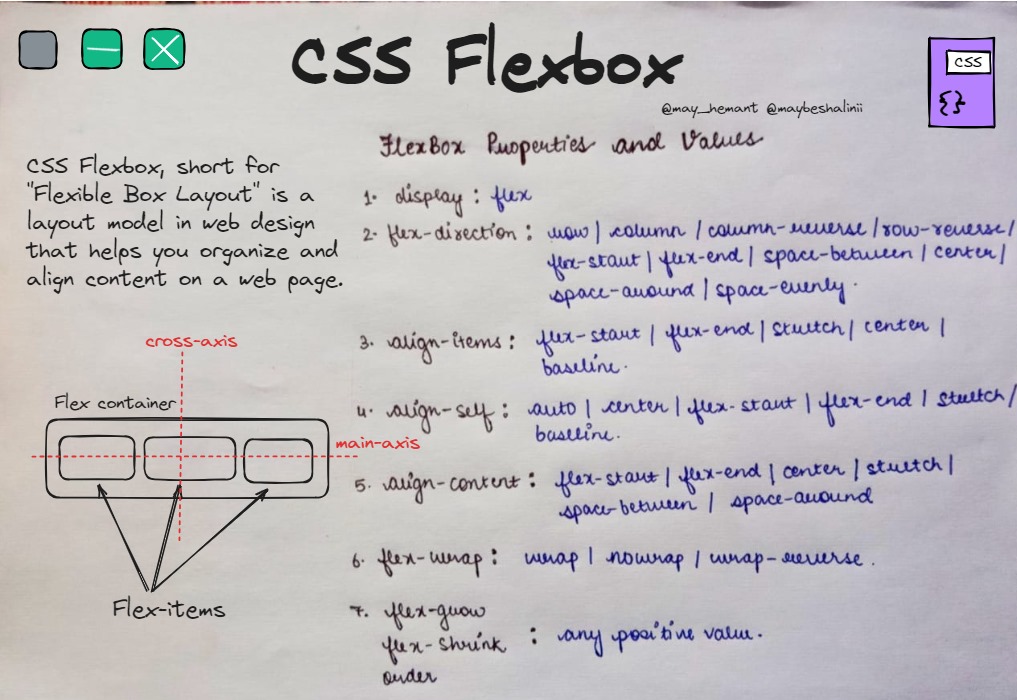 CSS Flexbox
CSS
{}
@may_hemant @maybeshalinii
FlexBox Properties and Values
CSS Flexbox, short for
"Flexible Box Layout" is a
layout model in web design
that helps you organize and
align content on a web page.
cross-axis
Flex container
main-axis
Flex-items
1. display : flex
2. flex-direction : row | column / column-reverse / row-reverse /
flex-start | flex-end | space-between | center |
space-around | space-evenly.
3. align-items : flex-start | flex-end | stretch | center |
baseline.
4. align-self : auto | center | flex-start | flex-end | stretch /
baseline.
5. align-content : flex-start | flex-end | center | stretch |
space-between | space-around
6. flex-wrap : wrap | nowrap / wrap-reverse.
7. flex-grow
flex-shrink : any positive value.
order